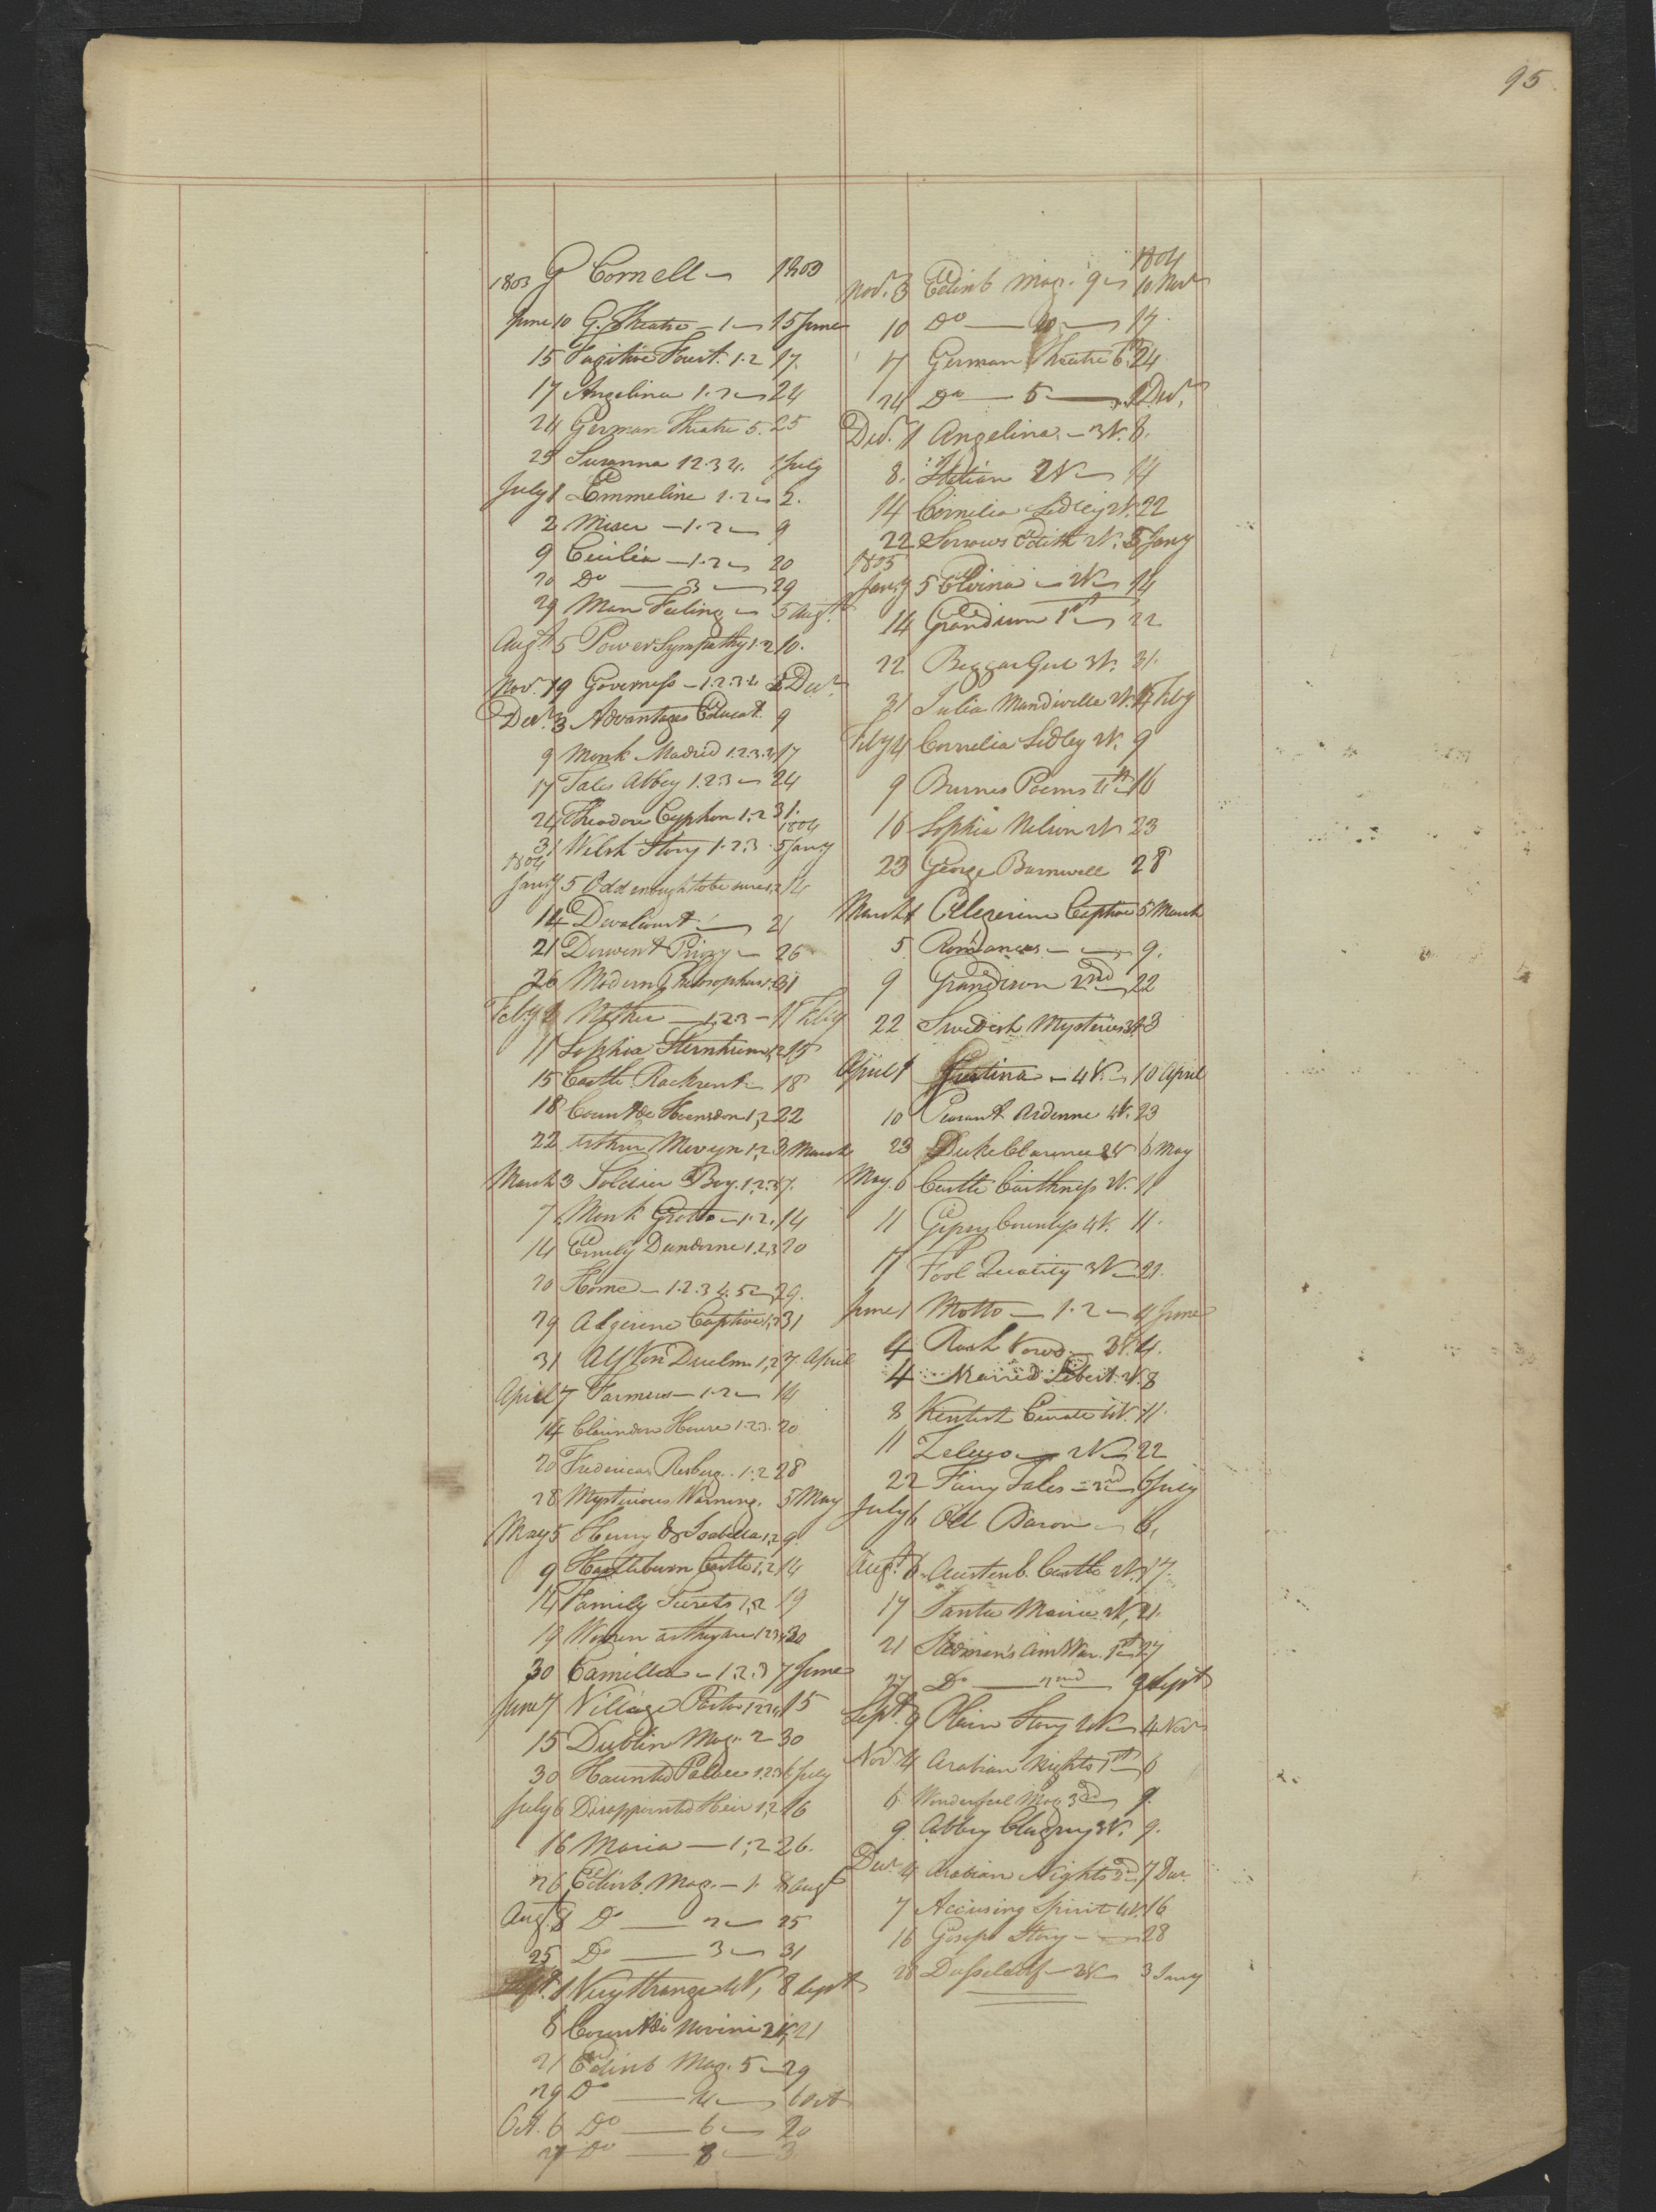 95
1803 G Cornell 1803
June 10 G. Theatre - 1 - 15 June
15 Fugitive Forest. 1.2 17.
17 Angelina 1.2 24
24 German Theatre 5. 25
25 Susanna 1 2.3 4. 1 July
July 1 Emmeline 1.2 2.
2 Miser - 1.2 9
9 Cecilia - 1.2 20
20 Do 3 29
29 Man Feeling 5 Augt.
Augt 5 Power Sympathy 1.2 10.
Nov. 19 Governess - 1.2.3.4 3 Decr.
Decr. 3 Advantages Educat. 9
9 Monk Madrid 1.2.3.4 17
17 Tales Abbey 1.2.3 24
24 Theodore Cyphon 1.2 31.
31 Welsh Story 1.2.3 1804 5 Jany
1804
Jany 5 Odd enough to be sure 1.2 14
14 Devalcourt 21
21 Derwent Priory 26
26 Modern Philosophers 31
Feby 1 Mother - 1.2.3 - 11 Feby
11 Sophia Sternheim 1,2 15
15 Castle Rackrent 18
18 Count de Hoensdon 1,2 22
22 Arthur Mervyn 1,2 3 March
March 3 Soldier Boy. 1.2.3 7.
7 Monk Grotto - 1.2. 14
14 Emily Dundorne 1.2.3 20
20 Home - 1.2.3 4.5 29.
29 Algerine Captive 1,2 31
31 Alf Von Duelm 1,2 7. April
April 7 Farmers - 1.2 14
14 Clarindon House 1.2.3. 20
20 Frederica Risberg. 1.2 28
28 Mysterious Warning. 5 May
May 5 Henry & Isabella 1,2 9
9 Hartlebourn Castle 1,2 14
14 Family Secrets 1,2 19
19 Women as they are 1 2 3 4 30
30 Camilla - 1.2.3 7 June
June 7 Village Pastor 1 2 3 4 15
15 Dublin Mag. 2 30
30 Haunted Palace 1.2.3 6 July
July 6 Disappointed Heir 1,2 16
16 Maria - 1,2 26.
26 Edinb. Mag. - 1. 8 Augt
Augt. 8 Do 2 25
25 Do 3 31
Sept. 1 Very Strange 4V, 8 Sept
8 Count de Novini 2V. 21
21 Edinb Mag. 5 29
29 Do 4 6 Oct
Oct. 6 Do 6 20
27 Do 8 3
1804
Nov. 3 Edinb Mag. 9 10. Novr
10 Do 10 17
17 German Theatre 6th 24
24 Do 5 1 Decr.
Decr. 1 Angelina. - 3V. 8.
8. Italian 2V 14
14 Cornelia Sedley 2V. 22
22 Sorrows Edith 2V. 5 Jany
1805
Jany 5 Elvina 2V 14
14 Grandison 1st 22
22 Beggar Girl 3V. 31.
31 Julia Mandiville 2V. 4 Feby
Feby 4 Cornelia Sedley 2V. 9
9 Burnes Poems 4th 16
16 Sophia Nelson 2V 23
23 George Barnwell 28
March 1 Algerine Captive 5 March
5 Romances 9.
9 Grandison 2nd 22
22 Swedish Mysteries 3V. 3
April 1 Justina - 4V. 10 April
10 Peasant Ardenne 4V. 23
23 Duke Clarence 2V 6 May
May. 6 Castle Caithness 2V. 11
11 Gipsy Countess 4V. 11.
17 Fool Quality 3V 21.
June 1 Motto - 1.2 - 4 June
4 Rash Vows 3V. 4.
4 Married Libert. 2V. 8
8 Kentish Curate 4V. 11.
11 Zeluco 2V 22
22 Fairy Tales - 2nd 6 July
July 6 Old Baron 6,
Augt. 6 Austenb. Castle 2V. 17.
17 Santa Maria 2V, 21.
21 Stedman's Am War. 1st 27
27 Do 2nd 9 Sept
Sept. 9 Plain Story 4V 4 Novr
Novr 4 Arabian Nights 1st 6
6 Wonderful Mag 3d 9.
9 Abbey Clugny 3V. 9.
Decr 4 Arabian Nights 2d 7 Decr.
7 Accusing Spirit 4V. 16
16 Gosops Story - 28
28 Dusseldorf - 2V 3 Jany